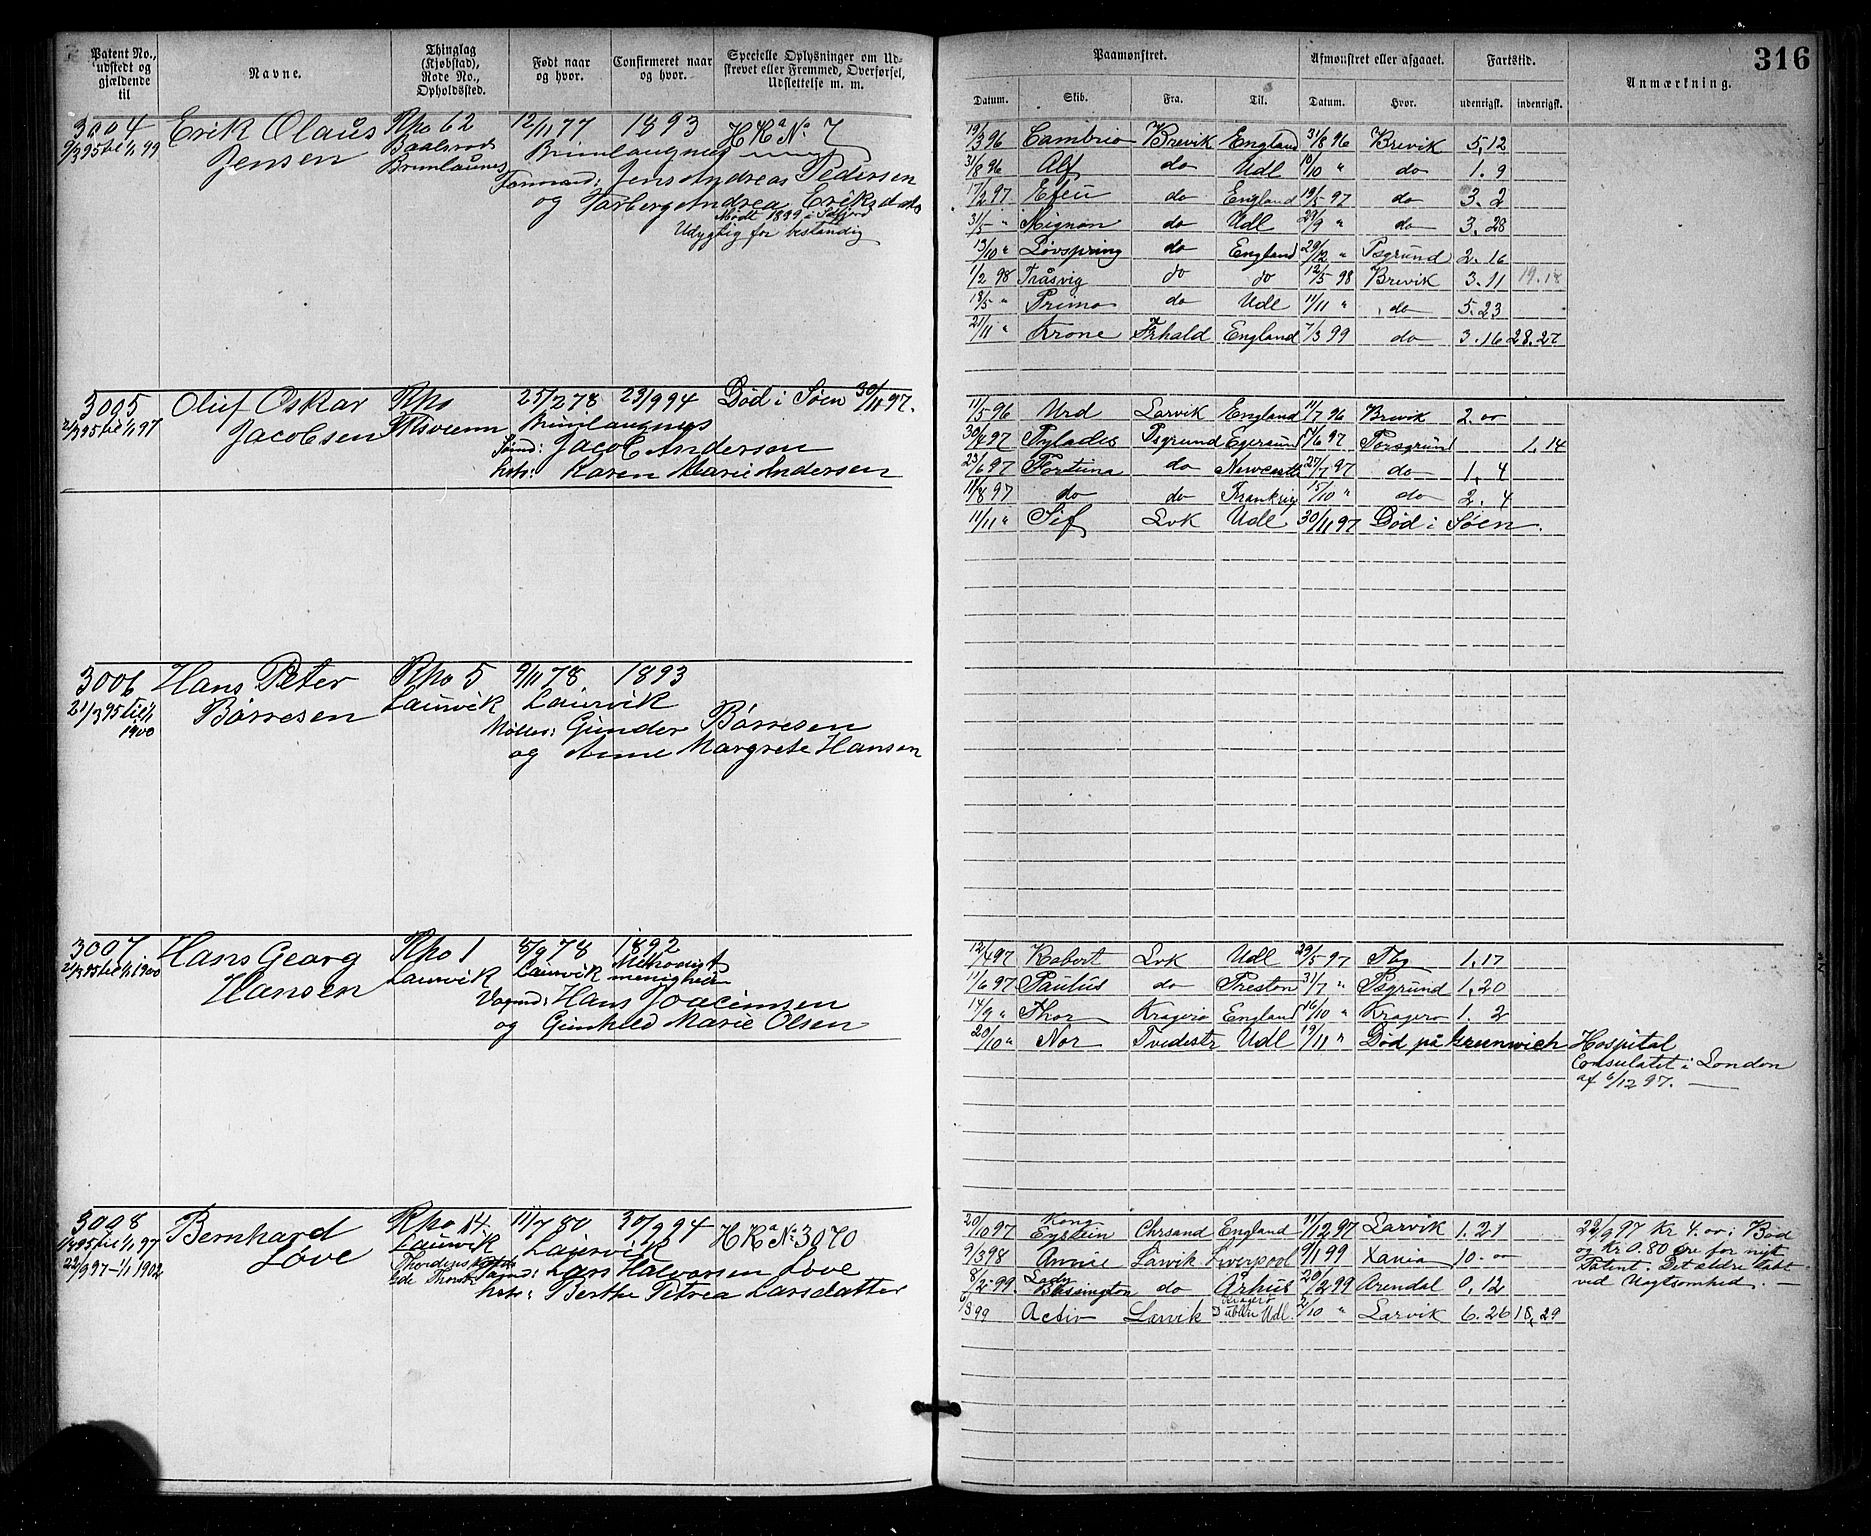 316
Patent No., udstedt og gjældende til
Navne.
Thinglag (Kjøbstad), Rode No., Opholdssted.
Født naar og hvor.
Confirmeret naar og hvor.
Specielle Oplysninger om Udskrevet eller Fremmed, Overførsel, Udslettelse m. m.
Paamønstret.
Afmønstret eller afgaaet.
Fartstid.
Anmærkning.
Datum. Skib. Fra. Til. Datum. Hvor. udenrigsk. indenrigsk.
3004 Erik Olaus Rho 62 12/11 77 1893 HKa No 7
9/3 95 til 1/1 99 Jensen Brunlaugnæs
Jens Andreas Pedersen
og Andrea Eriksdatter
Mødt 1899
Udygtig for bestandig
19/3 96 Cambria Brevik England 31/8 96 Brevik 5,12
31/8 96 Alf do Udl 10/10 " do 1.9
17/2 97 Efeu do England 19/5 97 do 3.2
31/5 " Mignon do Udl 29/9 " do 3.28
13/10 " Løvspring do England 29/12 " Psgrund 2.16
1/2 98 Fråsvig do do 12/5 98 Brevik 3.11 19.18
18/5 " Primo do Udl 11/11 " do 5.23
21/11 " Krone Frhald England 7/3 99 do 3.16 28.27
3005 Oluf Oskar Rho 25/2 78 23/9 94 Død i Søen 30/11 97.
2/3 95 til 1/1 97 Jacobsen Brunlaugnæs
Jacob Andersen
hstr: Karen Marie Andersen
11/5 96 Urd Larvik England 11/7 96 Brevik 2.00
30/4 97 Pylades Psgrund Egersund 14/6 97 Porsgrund 1.14
23/6 97 Fortuna do Newcastle 25/7 97 do 1.4
11/8 97 do do Frankrig 15/10 " do 2.4
11/11 " Sif Lvk Udl 30/11 97 Død i Søen.
3006 Hans Peter Rho 5 9/11 78 1893
21/3 95 til 1/1 1900 Børresen Laurvik Laurvik
Møller: Gunder Børresen
og Anne Margrete Hansen
3007 Hans Georg Rho 1 15/9 78 1892
2/3 95 til 1/1 1900 Hansen Laurvik Laurvik Methodist menigheden
Vognmd: Hans Joacimsen
og Gunhild Marie Olsen
12/4 97 Robert Lvk Udl 29/5 97 Tbg 1.17
11/6 97 Paulus do Preston 31/7 " Psgrund 1.20
14/9 " Thor Kragerø England 16/10 " Kragerø 1.2
20/10 " Nor Tvedestr Udl 19/11 " Død på Greenwich Hospital
Consulatet i London
af 6/12 97.
3008 Bernhard Rho 14. 11/7 80 30/9 94 HKa No 3070
1/4 95 til 1/1 97 Løve Laurvik Laurvik
22/9 97 - 1/1 1902
Lars Halvorsen Løve
hstr: Berthe Petrea Larsdatter
20/10 97 Kong Eystein Chrsand England 11/12 97 Larvik 1.21
9/3 98 Annie Larvik Liverpool 9/1 99 Xania 10.00
8/2 99. Lady Bassington do Århus 20/2 99 Arendal 0,12
6/3 99 Activ Larvik Kragerø Dublin Udl. 2/10 " Larvik 6.26 18,29
22/9 97 Kr 4.00 i Bød
og Kr 0.80 øre for nyt
Patent. Det ældre tabt
ved Uagtsomhed.